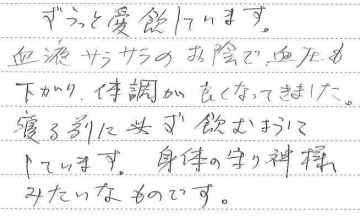 ずうっと愛飲しています。
血液サラサラのお陰で、血圧も
下がり、体調が良くなってきました。
寝る前に必ず飲むように
しています。身体の守り神様
みたいなものです。